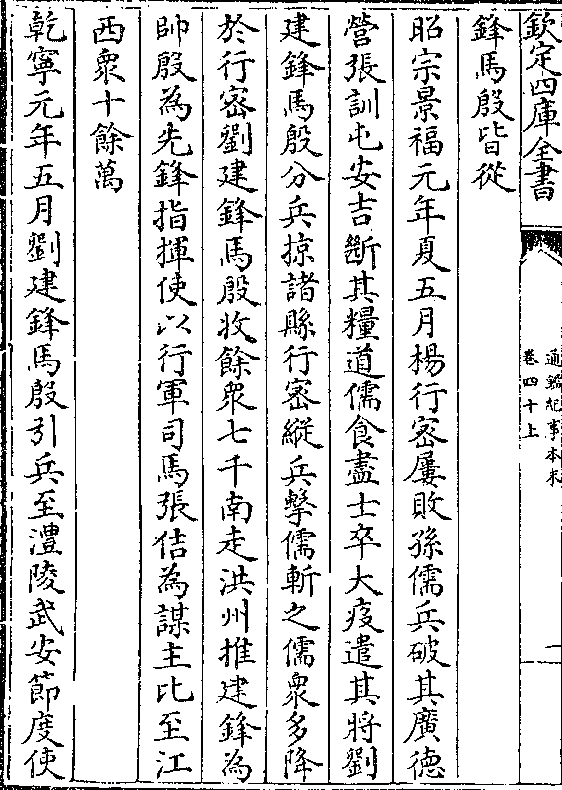 欽定四庫全書
通鑑紀事本末
卷四十上
一
鋒馬殷皆從
昭宗景福元年夏五月楊行密屢敗孫儒兵破其廣德
營張訓屯安吉斷其糧道儒食盡士卒大疫遣其將劉
建鋒馬殷分兵掠諸縣行密縱兵擊儒斬之儒衆多降
於行密劉建鋒馬殷收餘衆七千南走洪州推建鋒為
帥殷為先鋒指揮使以行軍司馬張佶為謀主比至江
西衆十餘萬
乾寧元年五月劉建鋒馬殷引兵至澧陵武安節度使